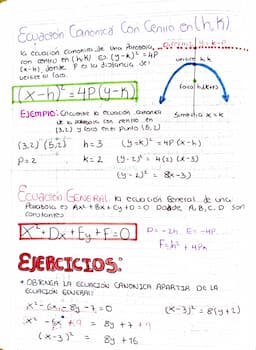 Ecuación Canonica Con Centro en (h,k)
la ecuación canonica de una Parabola
con centro en (h,k) es (y-k)² = 4P
(x-h) donde P es la distancia del
vertice al foco.
vertice h,k
foco h,(k+P)
Simetria x = h
(x-h)² = 4P(y-k)
EJEMPLO: Encuentre la ecuación canonica
de la parabola con centro en
(3,2) y foco en el punto (5,2)
(3,2) (5,2) h = 3 (y-k)² = 4P(x-h)
P = 2 k = 2 (y-2)² = 4(2)(x-3)
(y-2)² = 8(x-3)
Ecuación GENERAL la ecuación General de una
Parabola es Ax² + Bx + Cy + D = 0 Donde A, B, C, D son
constantes
X² + Dx + Ey + F = 0
D = -2h E = -4P
F = h² + 4Pk
EJERCICIOS:
• OBTENGA LA ECUACIÓN CANONICA APARTIR DE LA
ECUACIÓN GENERAL
x² - 6x - 8y - 7 = 0 (x-3)² = 8(y+2)
x² - 6x + 9 = 8y + 7 + 9
(x-3)² = 8y + 16